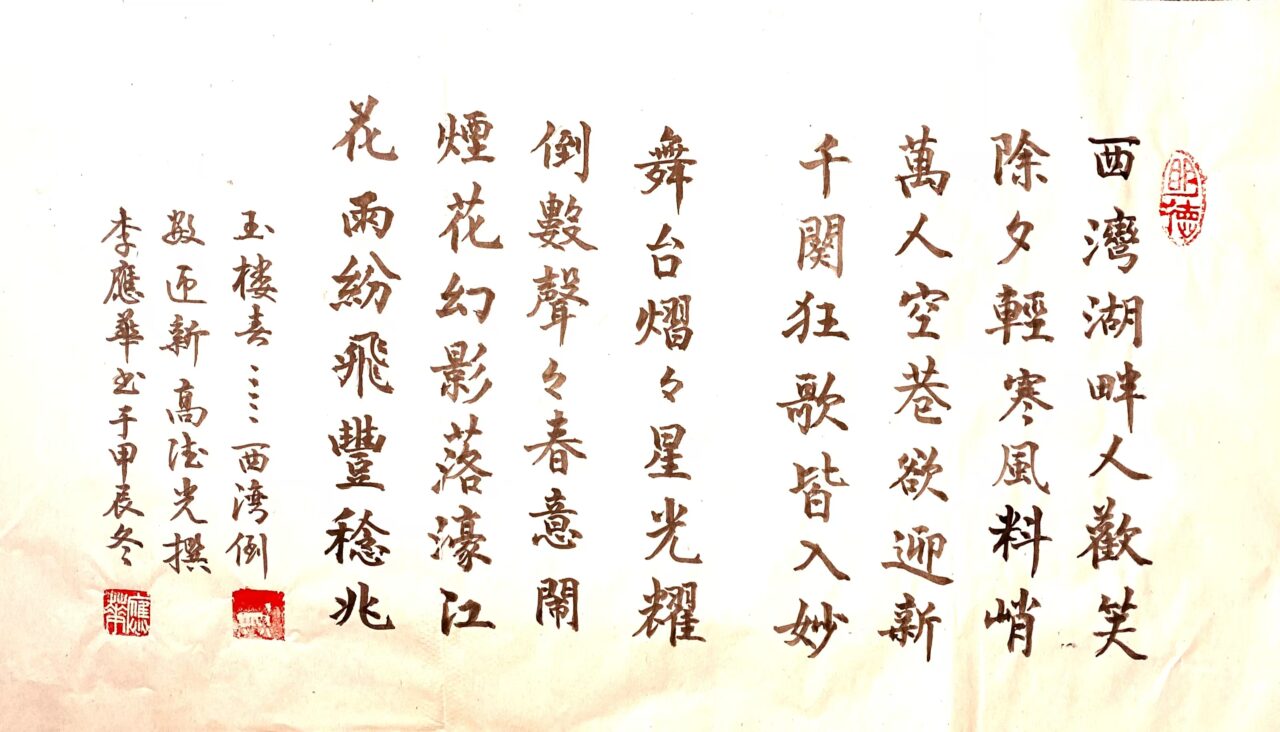 明德
西灣湖畔人歡笑
除夕輕寒風料峭
萬人空巷欲迎新
千闋狂歌皆入妙
舞台熠々星光耀
倒數聲々春意鬧
煙花幻影落濠江
花雨紛飛豐稔兆
玉樓春⋯⋯西湾倒
数迎新高德光撰
李應華书于甲辰冬
應華